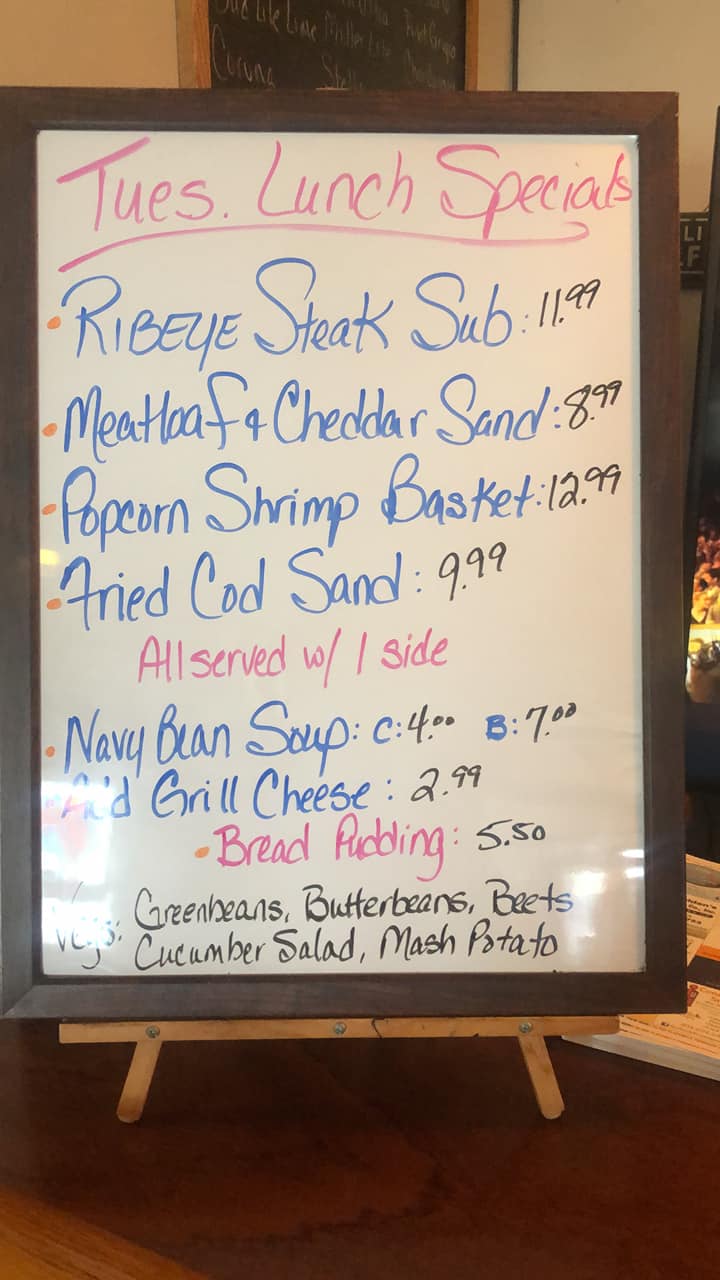 Bud Lite Lime Miller Lite Pinot Grigio
Corona Stella
Tues. Lunch Specials
• RIBEYE Steak Sub: 11.99
• Meatloaf & Cheddar Sand: 8.99
• Popcorn Shrimp Basket: 12.99
• Fried Cod Sand: 9.99
All served w/ 1 side
• Navy Bean Soup: C: 4.00 B: 7.00
Add Grill Cheese: 2.99
• Bread Pudding: 5.50
Vegs: Greenbeans, Butterbeans, Beets
Cucumber Salad, Mash Potato